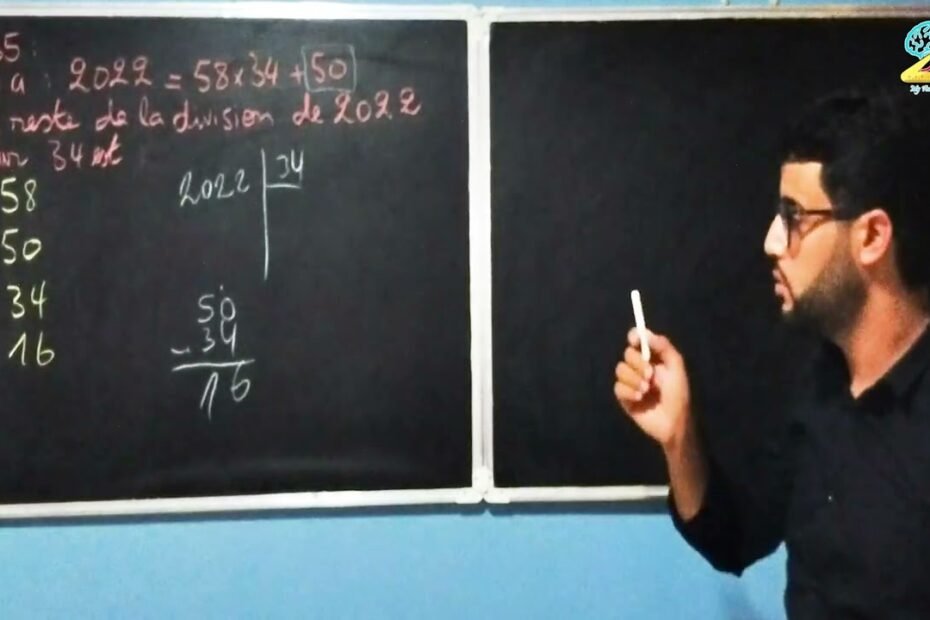 35:
a : 2022 = 58 x 34 + 50
reste de la division de 2022
34 est
58
50
34
16
2022 34
50
- 34
16